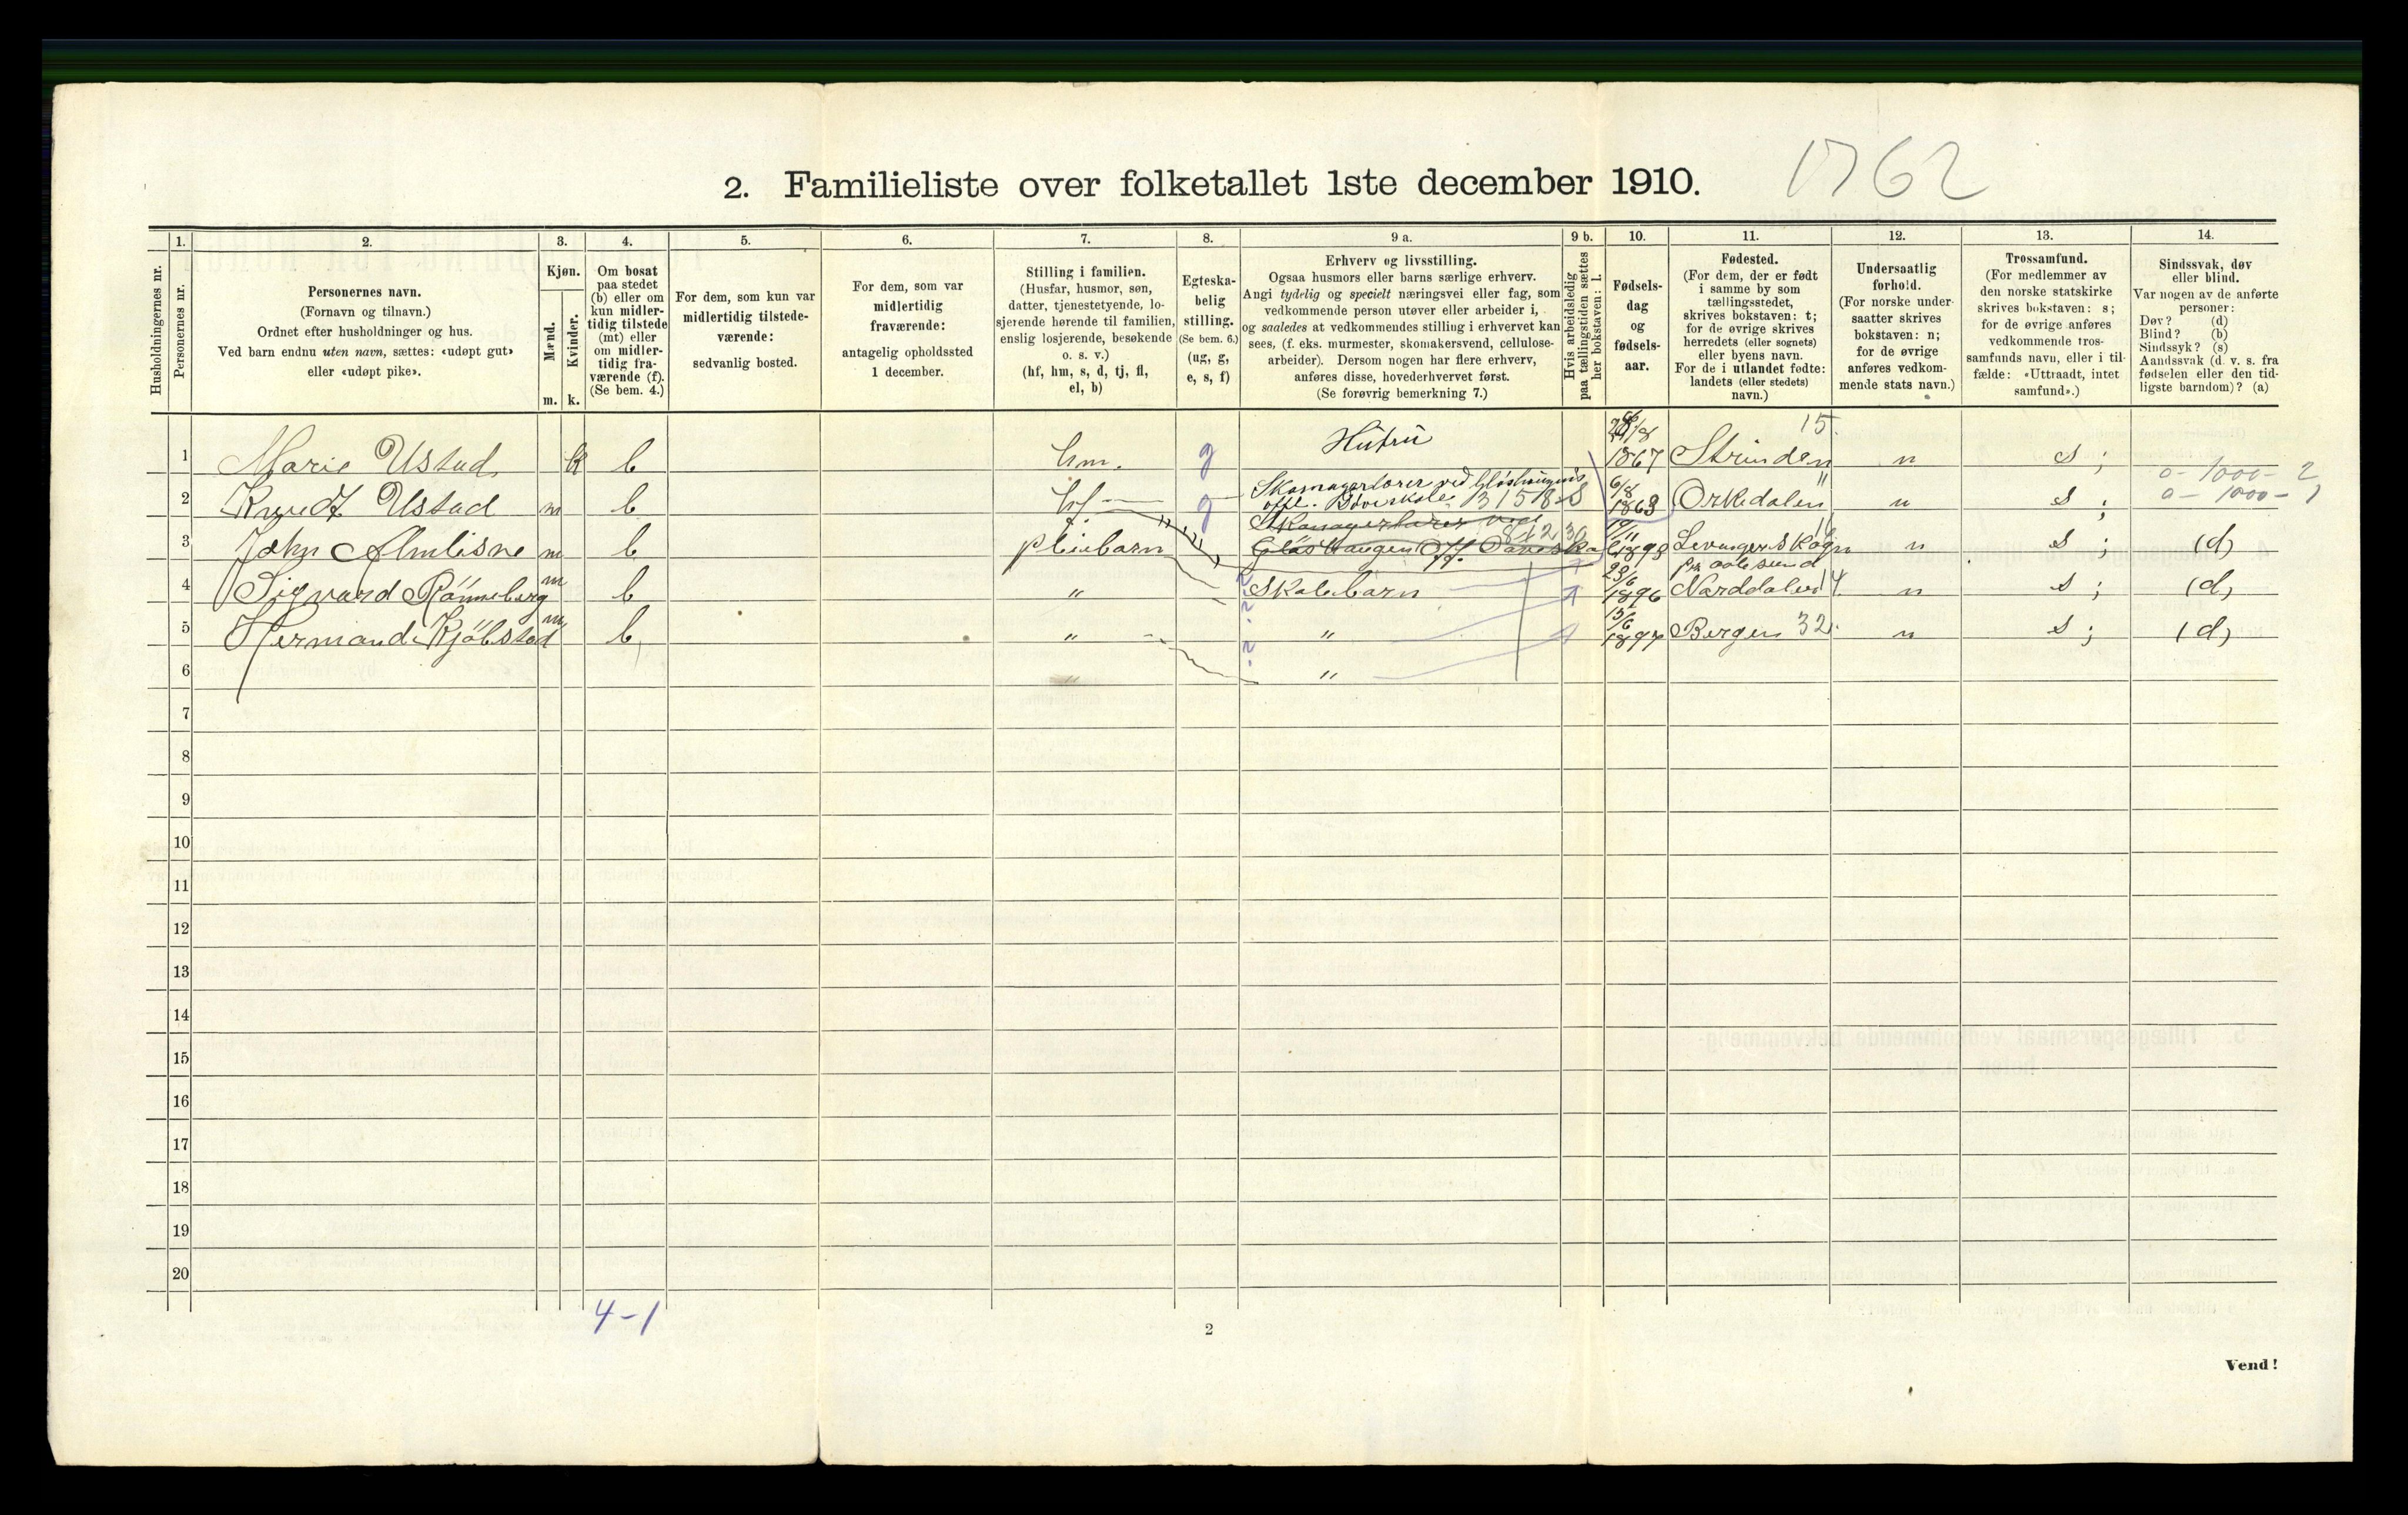 1762
2. Familieliste over folketallet 1ste december 1910.
Husholdningernes nr.
1. Personernes nr.
2. Personernes navn.
(Fornavn og tilnavn.)
Ordnet efter husholdninger og hus.
Ved barn endnu uten navn, sættes: «udøpt gut»
eller «udøpt pike».
3. Kjøn.
Mænd. m.
Kvinder. k.
4. Om bosat
paa stedet
(b) eller om
kun midler-
tidig tilstede
(mt) eller
om midler-
tidig fra-
værende (f).
(Se bem. 4.)
5. For dem, som kun var
midlertidig tilstede-
værende:
sedvanlig bosted.
6. For dem, som var
midlertidig
fraværende:
antagelig opholdssted
1 december.
7. Stilling i familien.
(Husfar, husmor, søn,
datter, tjenestetyende, lo-
sjerende hørende til familien,
enslig losjerende, besøkende
o. s. v.)
(hf, hm, s, d, tj, fl,
el, b)
8. Egteska-
belig
stilling.
(Se bem. 6.)
(ug, g,
e, s, f)
9 a. Erhverv og livsstilling.
Ogsaa husmors eller barns særlige erhverv.
Angi tydelig og specielt næringsvei eller fag, som
vedkommende person utøver eller arbeider i,
og saaledes at vedkommendes stilling i erhvervet kan
sees, (f. eks. murmester, skomakersvend, cellulose-
arbeider). Dersom nogen har flere erhverv,
anføres disse, hovederhvervet først.
(Se forøvrig bemerkning 7.)
9 b. Hvis arbeidsledig
paa tællingstiden sættes
her bokstaven: l.
10. Fødsels-
dag
og
fødsels-
aar.
11. Fødested.
(For dem, der er født
i samme by som
tællingsstedet,
skrives bokstaven: t;
for de øvrige skrives
herredets (eller sognets)
eller byens navn.
For de i utlandet fødte:
landets (eller stedets)
navn.)
12. Undersaatlig
forhold.
(For norske under-
saatter skrives
bokstaven: n;
for de øvrige
anføres vedkom-
mende stats navn.)
13. Trossamfund.
(For medlemmer av
den norske statskirke
skrives bokstaven: s;
for de øvrige anføres
vedkommende tros-
samfunds navn, eller i til-
fælde: «Uttraadt, intet
samfund».)
14. Sindssvak, døv
eller blind.
Var nogen av de anførte
personer:
Døv? (d)
Blind? (b)
Sindssyk? (s)
Aandssvak (d. v. s. fra
fødselen eller den tid-
ligste barndom)? (a)
1 Marie Ustad k b hm. g Hustru /8 1867 Strinden 15. n s ;
2 Knudt Ustad m b hf g Skomagerlærer ved offl. Døveskole 6/8 1863 Orkedalen " n s ; 0 - 1000 - 2
0 - 1000 - 1
3 John m b pleiebarn Skomagerlærer ved 19/11 1893 Levanger Skogn 16 n s ; (d)
4 Sigvard Rønneberg m b " Skolebarn 23/6 1896 Norddalen 14 n s ; (d)
5 Hermand Kjølstad m b " " 15/6 1897 Bergen 32. n s ; (d)
6 " "
7
8
9
10
11
12
13
14
15
16
17
18
19
20
4-1
2
Vend!